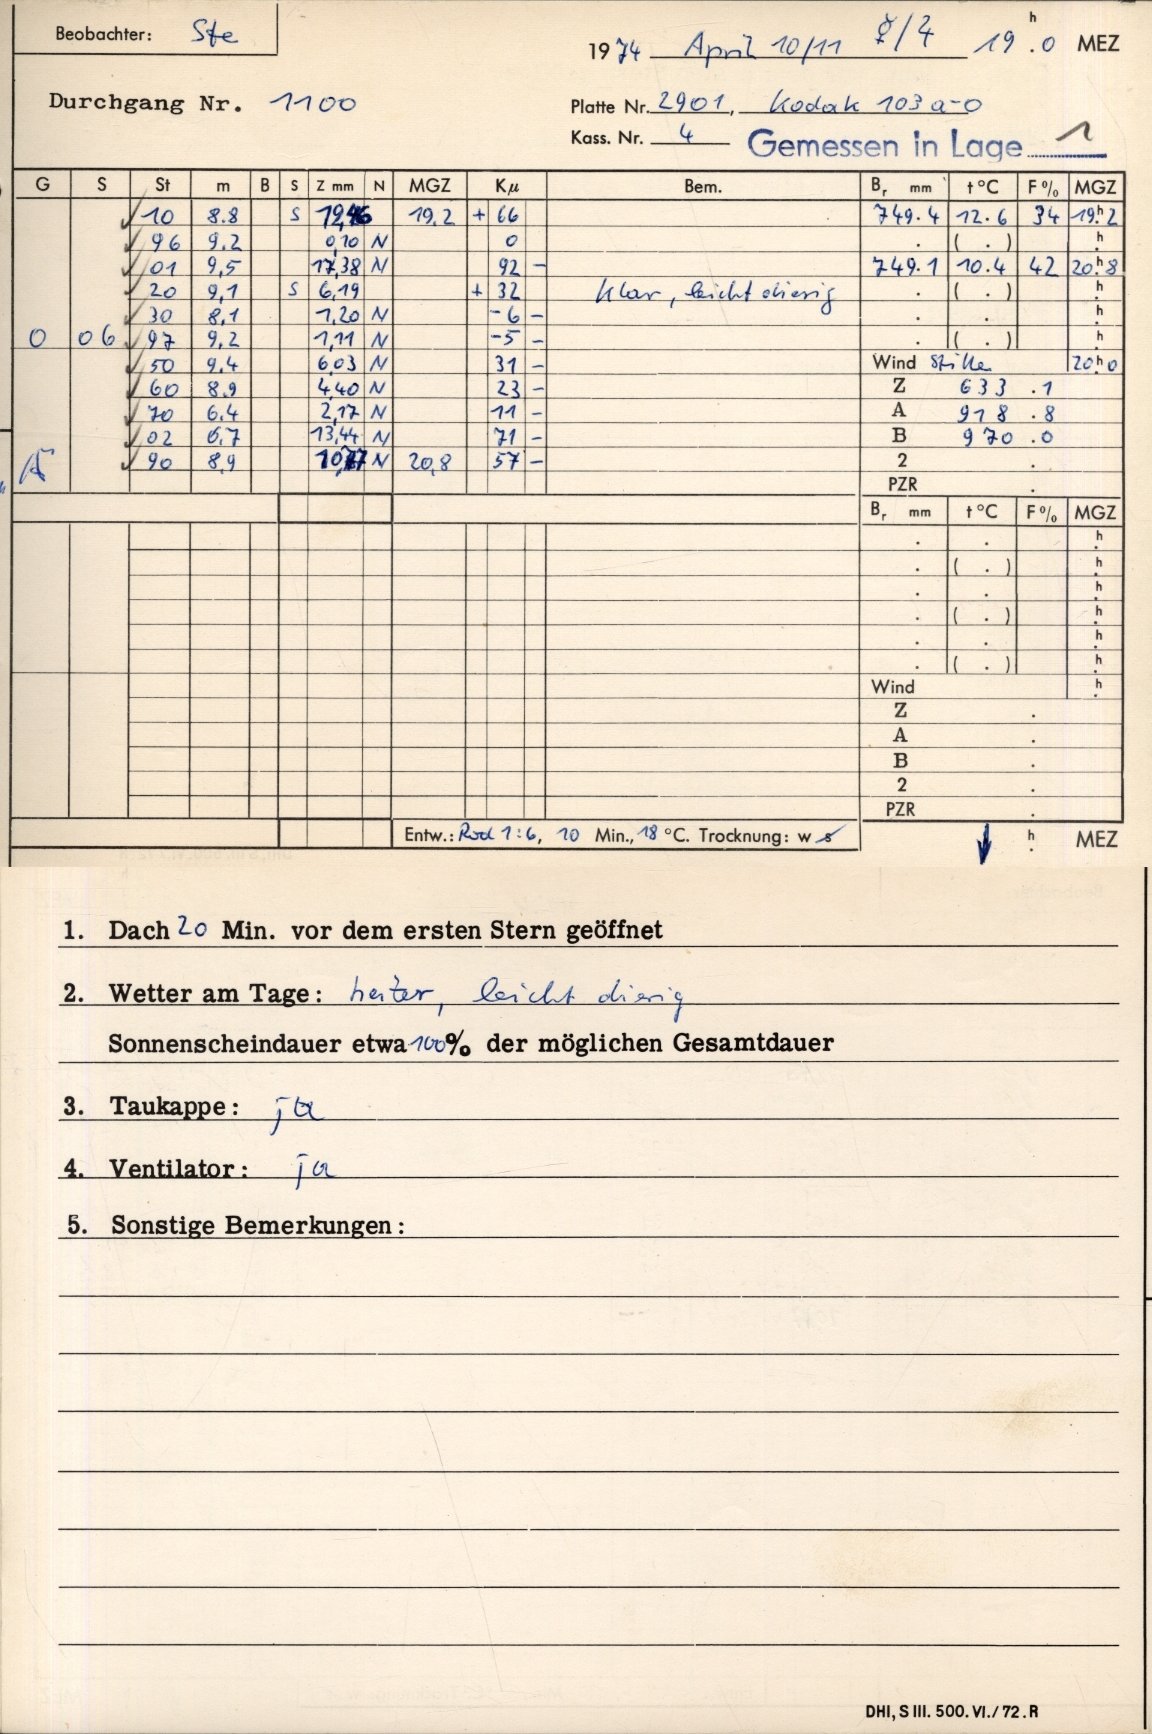 Beobachter: Ste
1974 April 10/11 ☿/♃ 19 h . 0 MEZ
Durchgang Nr. 1100
Platte Nr. 2901, Kodak 103 a-O
Kass. Nr. 4 Gemessen in Lage 1
G S St m B S Z mm N MGZ Kμ Bem. Br mm t °C F % MGZ
✓ 10 8.8 S 19,2 + 66 749.4 12.6 34 19h.2
✓ 96 9.2 0,10 N 0 . ( . ) h.
✓ 01 9,5 17,38 N 92 – 749.1 10.4 42 20h.8
✓ 20 9,1 S 6,19 + 32 klar, leicht diesig . ( . ) h.
✓ 30 8,1 1,20 N -6 – . . h.
0 06 ✓ 97 9,2 1,11 N -5 – . ( . ) h.
✓ 50 9.4 6,03 N 31 – Wind Stille 20h.0
✓ 60 8.9 4,40 N 23 – Z 633 .1
✓ 70 6.4 2,17 N 11 – A 918 .8
✓ 02 6,7 13,44 N 71 – B 970 .0
✓ 90 8,9 N 20,8 57 – 2 .
PZR .
Br mm t °C F % MGZ
. . h.
. ( . ) h.
. . h.
. ( . ) h.
. . h.
. ( . ) h.
Wind h.
Z .
A .
B .
2 .
PZR .
Entw.: Rod 1:6, 10 Min., 18 °C. Trocknung: w s
↓ h. MEZ
1. Dach 20 Min. vor dem ersten Stern geöffnet
2. Wetter am Tage: heiter, leicht diesig
Sonnenscheindauer etwa 100% der möglichen Gesamtdauer
3. Taukappe: ja
4. Ventilator: ja
5. Sonstige Bemerkungen:
DHI, S III. 500. VI./72. R